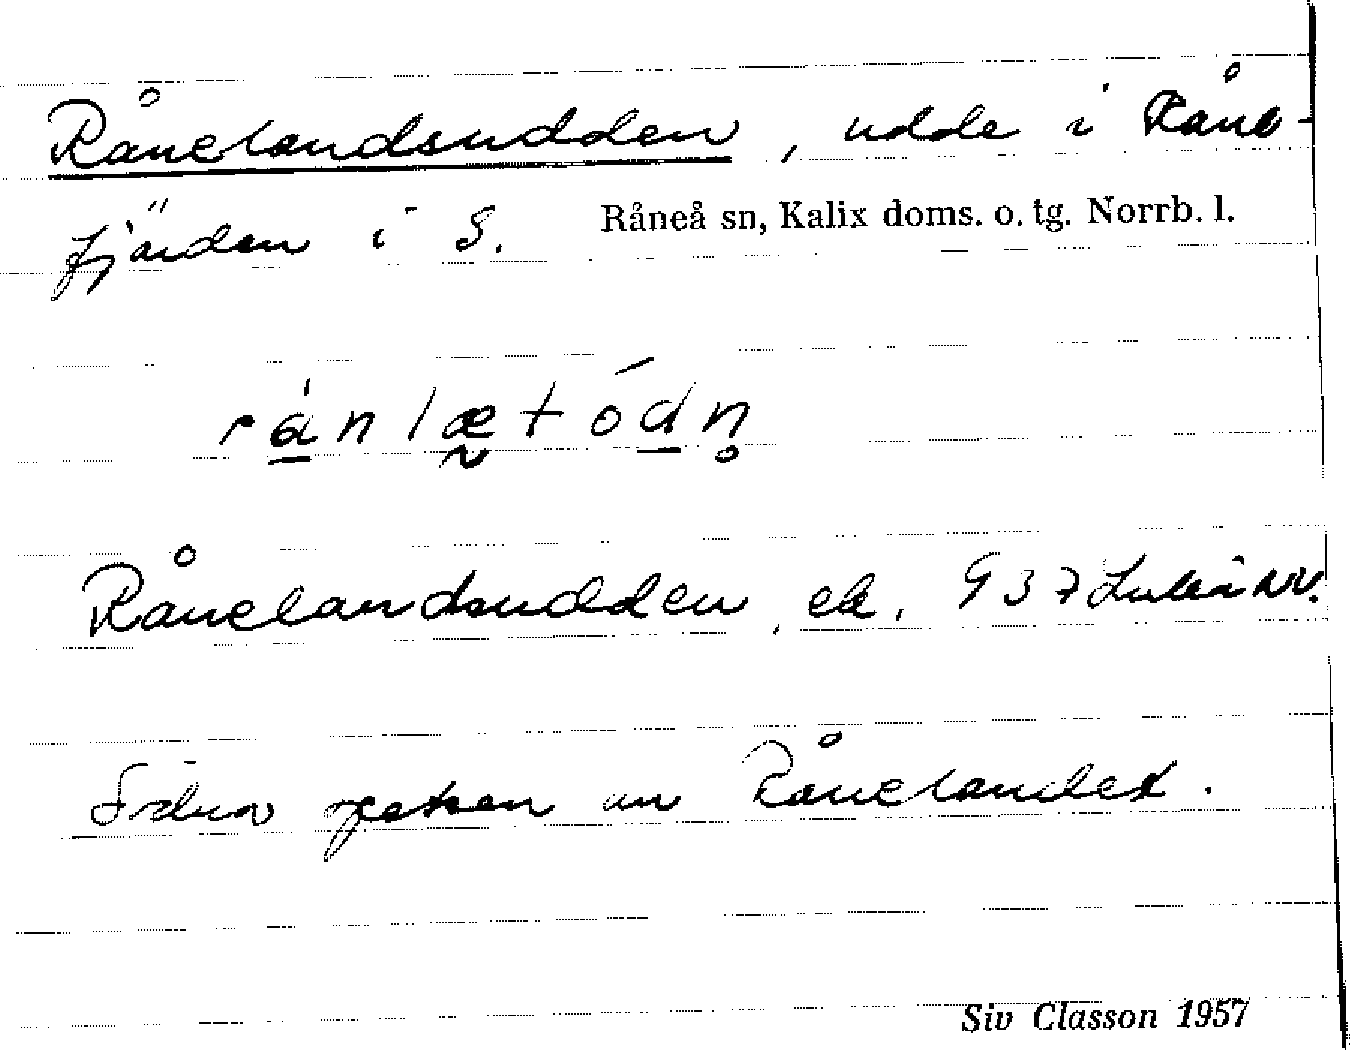 Rånelandsudden, udde i Råne-
fjärden i S. Råneå sn, Kalix doms. o. tg. Norrb. l.
rånlætódn̥
Rånelandsudden, ek. 937 Luleå NV.
Södra spetsen av Rånelandet.
Siv Classon 1957